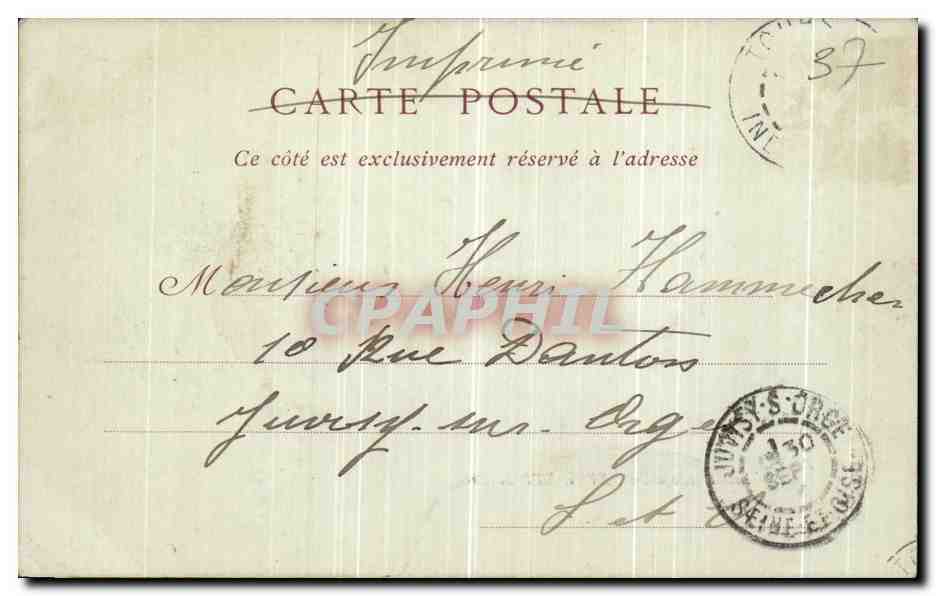 Imprimé
37
CARTE POSTALE
Ce côté est exclusivement réservé à l'adresse
Monsieur Henri Hammecher
CPAPHIL
10 Rue Danton
Juvisy-sur-Orge
S et O
JUVISY-S-ORGE
30
SEPT
SEINE-ET-OISE